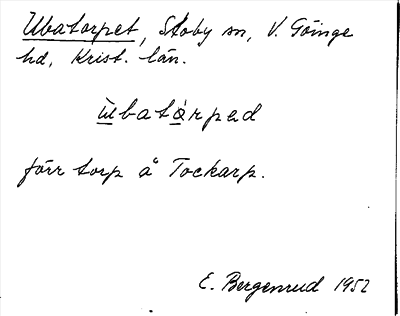 Ubatorpet, Stoby sn, V. Göinge
hd, Krist. län.
ùbatòrped
förr torp å Tockarp.
E. Bergenrud 1952